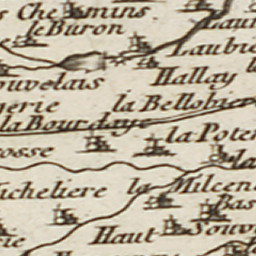 s Chemins.
le Buron
Laubie
ouvelais
Hallay
nerie
la Bellobier
la Bourdaye
la Poter
osse
la
ucheliere
la Milcen
Bas
rie
Haut
Souv